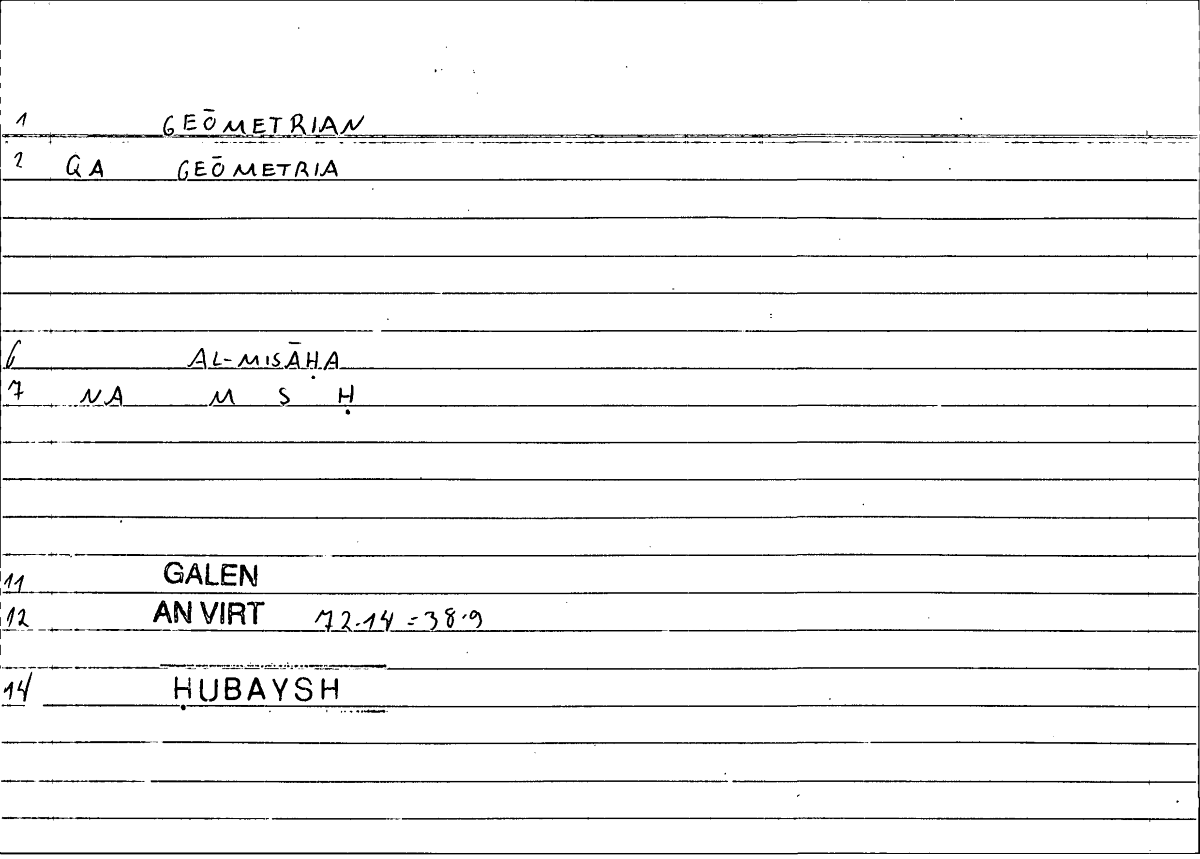 1 GEŌMETRIAN
2 QA GEŌMETRIA
6 AL-MISĀḤA
7 NA M S Ḥ
11 GALEN
12 AN VIRT 72.14 = 38.9
14 ḤUBAYSH